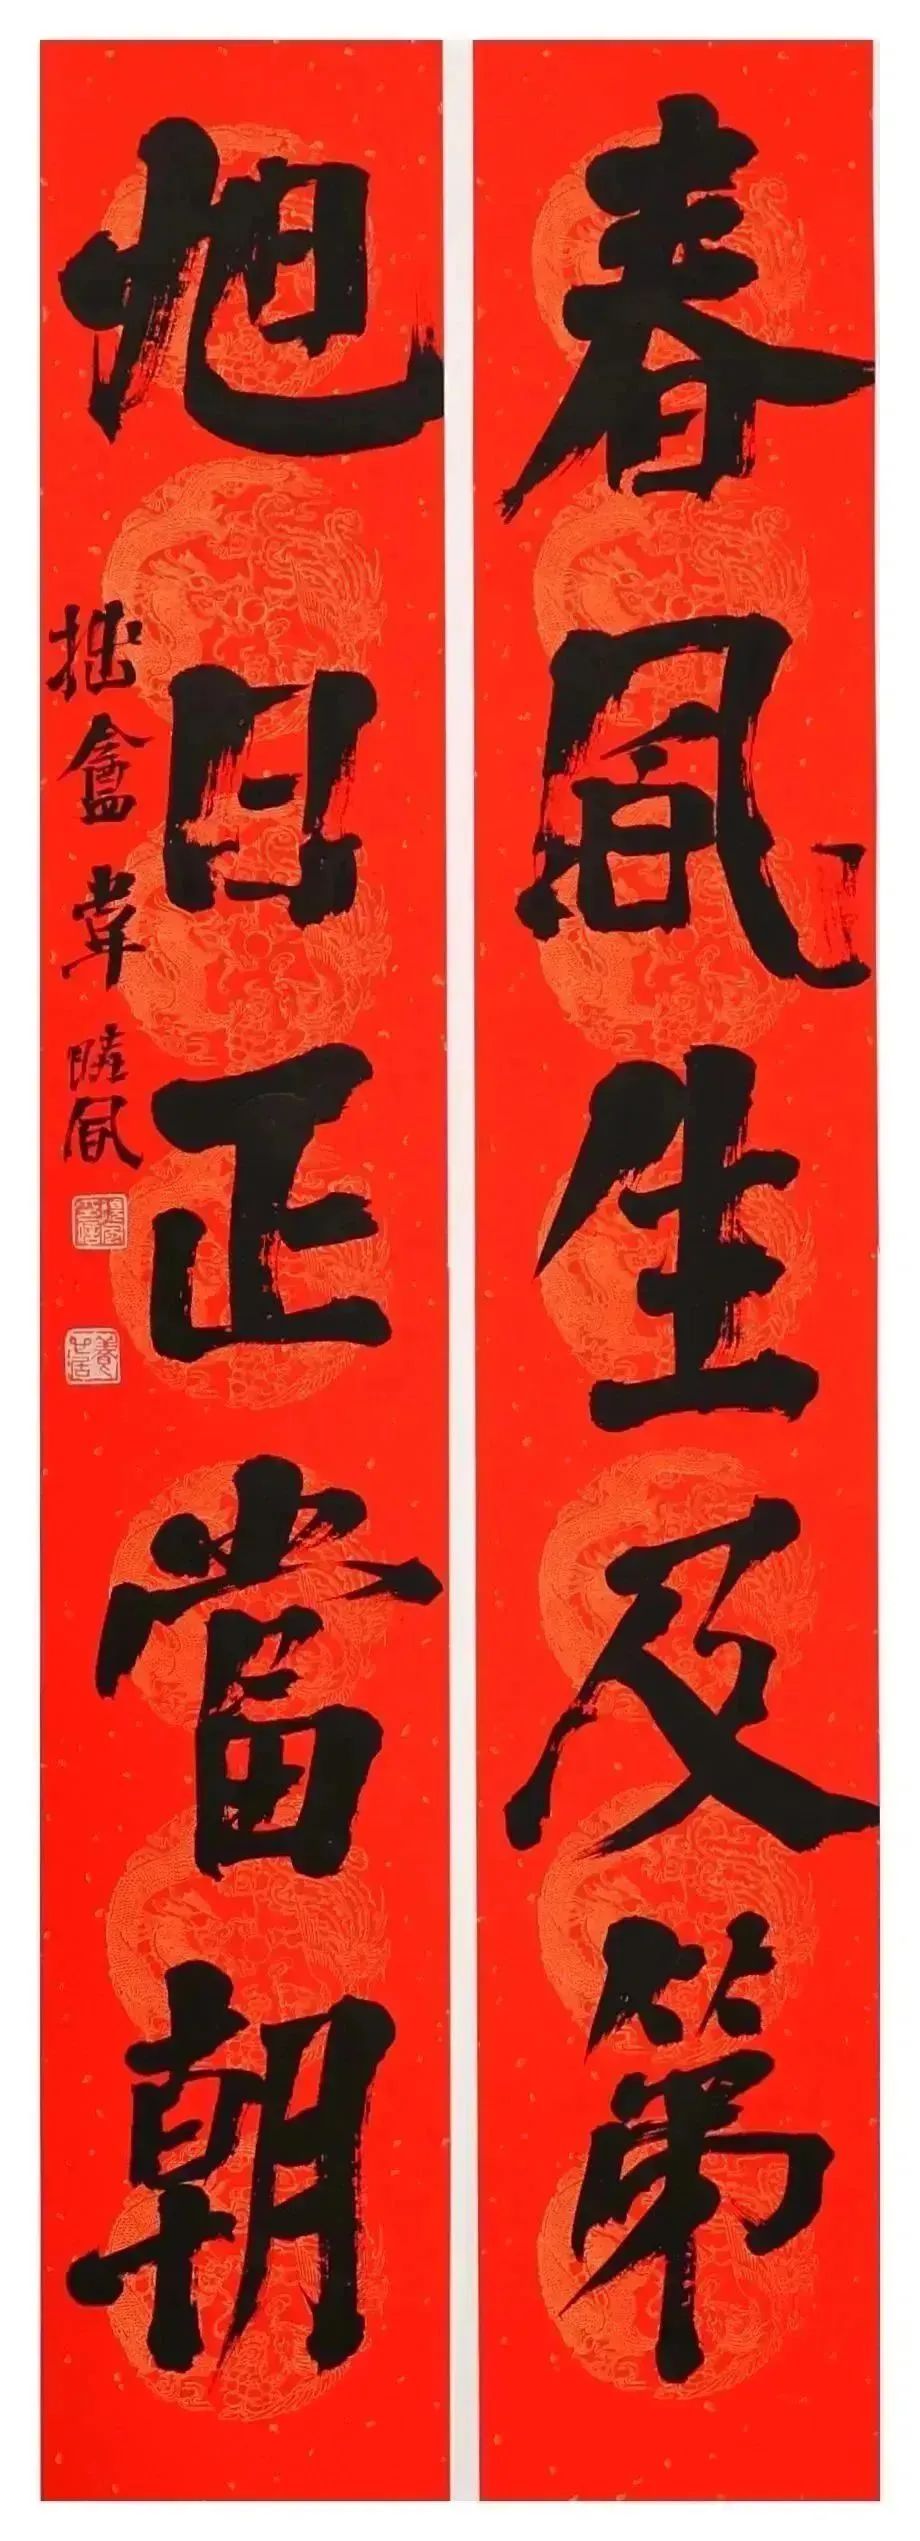 春風生及第
旭日正當朝
拙盦韋風